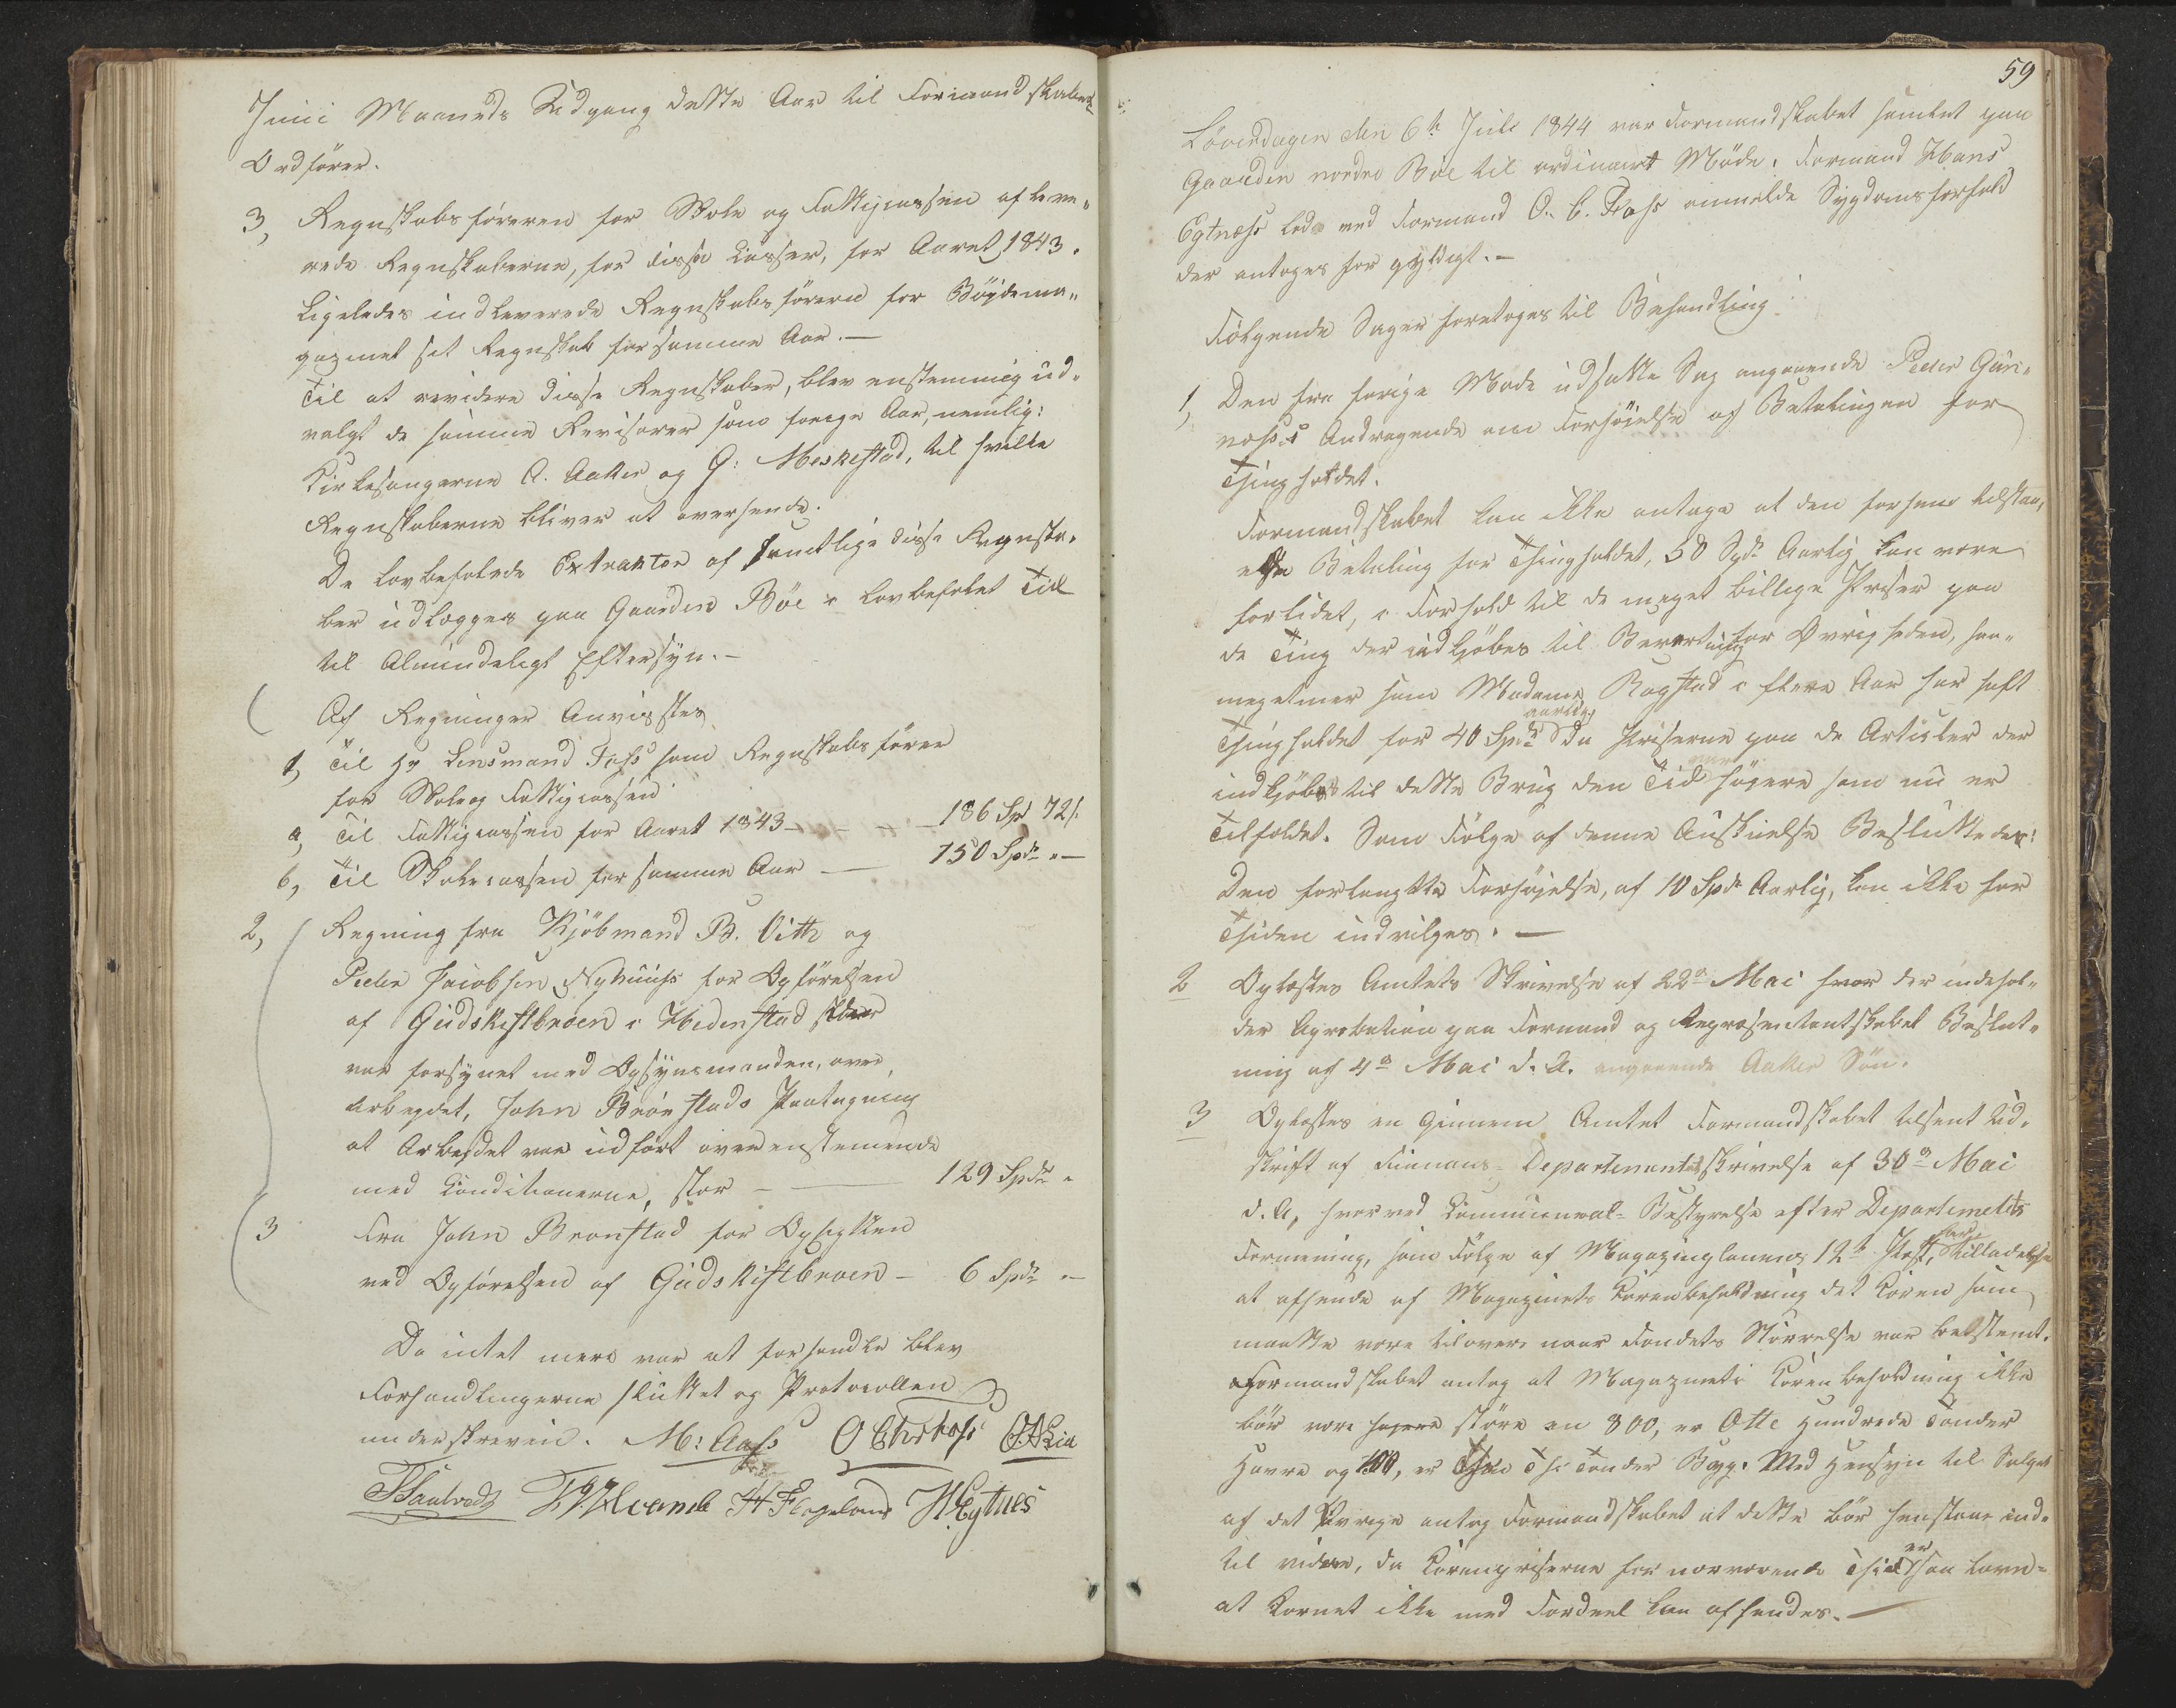 Juni Maaneds Udgang dette Aar til Formandskabets
Ordfører.
3, Regnskabsføreren for Skole og Fattigcassen afleve-
rede Regnskaberne, for disse Casser, for Aaret 1843.
Ligeledes indleverede Regnskabsføreren for Bøydema-
gazinet sit Regnskab for samme Aar.—
Til at revidere disse Regnskaber, blev enstemmig ud-
valgt de samme Revisorer som forrige Aar, nemlig:
Kirkesangerne A. Aaker og G: Meskestad, til hvilke
Regnskaberne bliver at oversende.
De lovbefalede Extrakter af samtlige disse Regnska-
ber udlægges paa Gaarden Böe i lovbefalet Tid
til Almindeligt Eftersyn.—
Af Regninger Anvisstes
1, Til Hr Lensmand Foss som Regnskabsfører
for Skole og Fattigcassen
a, Til Fattigcassen for Aaret 1843 — 186 Spd 72 s.
b, Til Skolecassen for samme Aar — 150 Spdr "—
2, Regning fra Kjöbmand B. Vith og
Peder Jacobsen Nyhuus for Opførelsen
af Gudskistbroen i Hedenstad
var forsynet med Opsynsmanden, over
Arbeydet, John Brönstads Paategning
at Arbeydet var udført overenstemende
med Conditionerne, stor — 129 Spdr "
3 Fra John Bronstad for Opsigten
ved Opførelsen af Gudskistbroen — 6 Spdr "—
Da intet mere var at forhandle blev
Forhandlingerne sluttet og Protocollen
underskreven. M: Aass O Chr Foss
H Flageland H Egtnes
59
Løverdagen den 6te Juli 1844 var Formandskabet samlet paa
Gaarden nordre Böe til ordinairt Møde. Formand Hans
Egtnæss lod ved Formand O. C. Foss anmelde Sygdomsforfald
der antoges for gyldigt.—
Følgende Sager foretoges til Behandling:
1, Den fra forige Møde udsatte Sag angaaende Peder Gun-
næss's Andragende om Forhøjelse af Betalingen for
Thingholdet.
Formandskabet kan ikke antage at den forhen tilstaa-
ede Betaling for Thingholdet, 50 Spd Aarlig kan være
forlidet, i Forhold til de meget billige Priser paa
de Ting der indkjöbes til Bevertning for Øvrigheden, saa-
megetmer som Madame Rogstad i flere Aar har haft
aarlig
Thingholdet for 40 Spd da Priserne paa de Artikler der
var
indkjöbes til dette Brug den Tid højere som nu er
Tilfældet. Som Følge af denne Anskuelse Besluttedes:
Den forlangte Forhøjelse, af 10 Spdr Aarlig, kan ikke for
Thiden indvilges.—
2 Oplæstes Amtets Skrivelse af 22de Mai hvor der indehol-
der Aprobation paa Formand og Repræsentantskabet Beslut-
ning af 4de Mai d. A. angaaende Aaker Sön.
3 Oplæstes en gjennem Amtet Formandskabet tilsent Ud-
skrift af Finans-Departementetsskrivelse af 30de Mai
d. A, hvorved Communeal-Bestyrelse efter Departementets
har
Formening, som Følge af Magazinplanens 12te Post, Tilladelse
at afhende af Magazinets Kornbeholdning det Korn som
maatte være tilovers naar Fondets Störrelse var bestemt.
Formandskabet antog at Magazinets Kornbeholdning ikke
bör være højere störe en 800, er Otte Hundrede Tønder
Havre og 100, er Thi Tønder Byg. Med Hensyn til Salget
af det Øvrige antog Formandskabet at dette bör henstaae ind-
er
til videre, da Kornpriserne for nærværende Thid saa lave-
at Kornet ikke med Fordeel kan afhendes.—